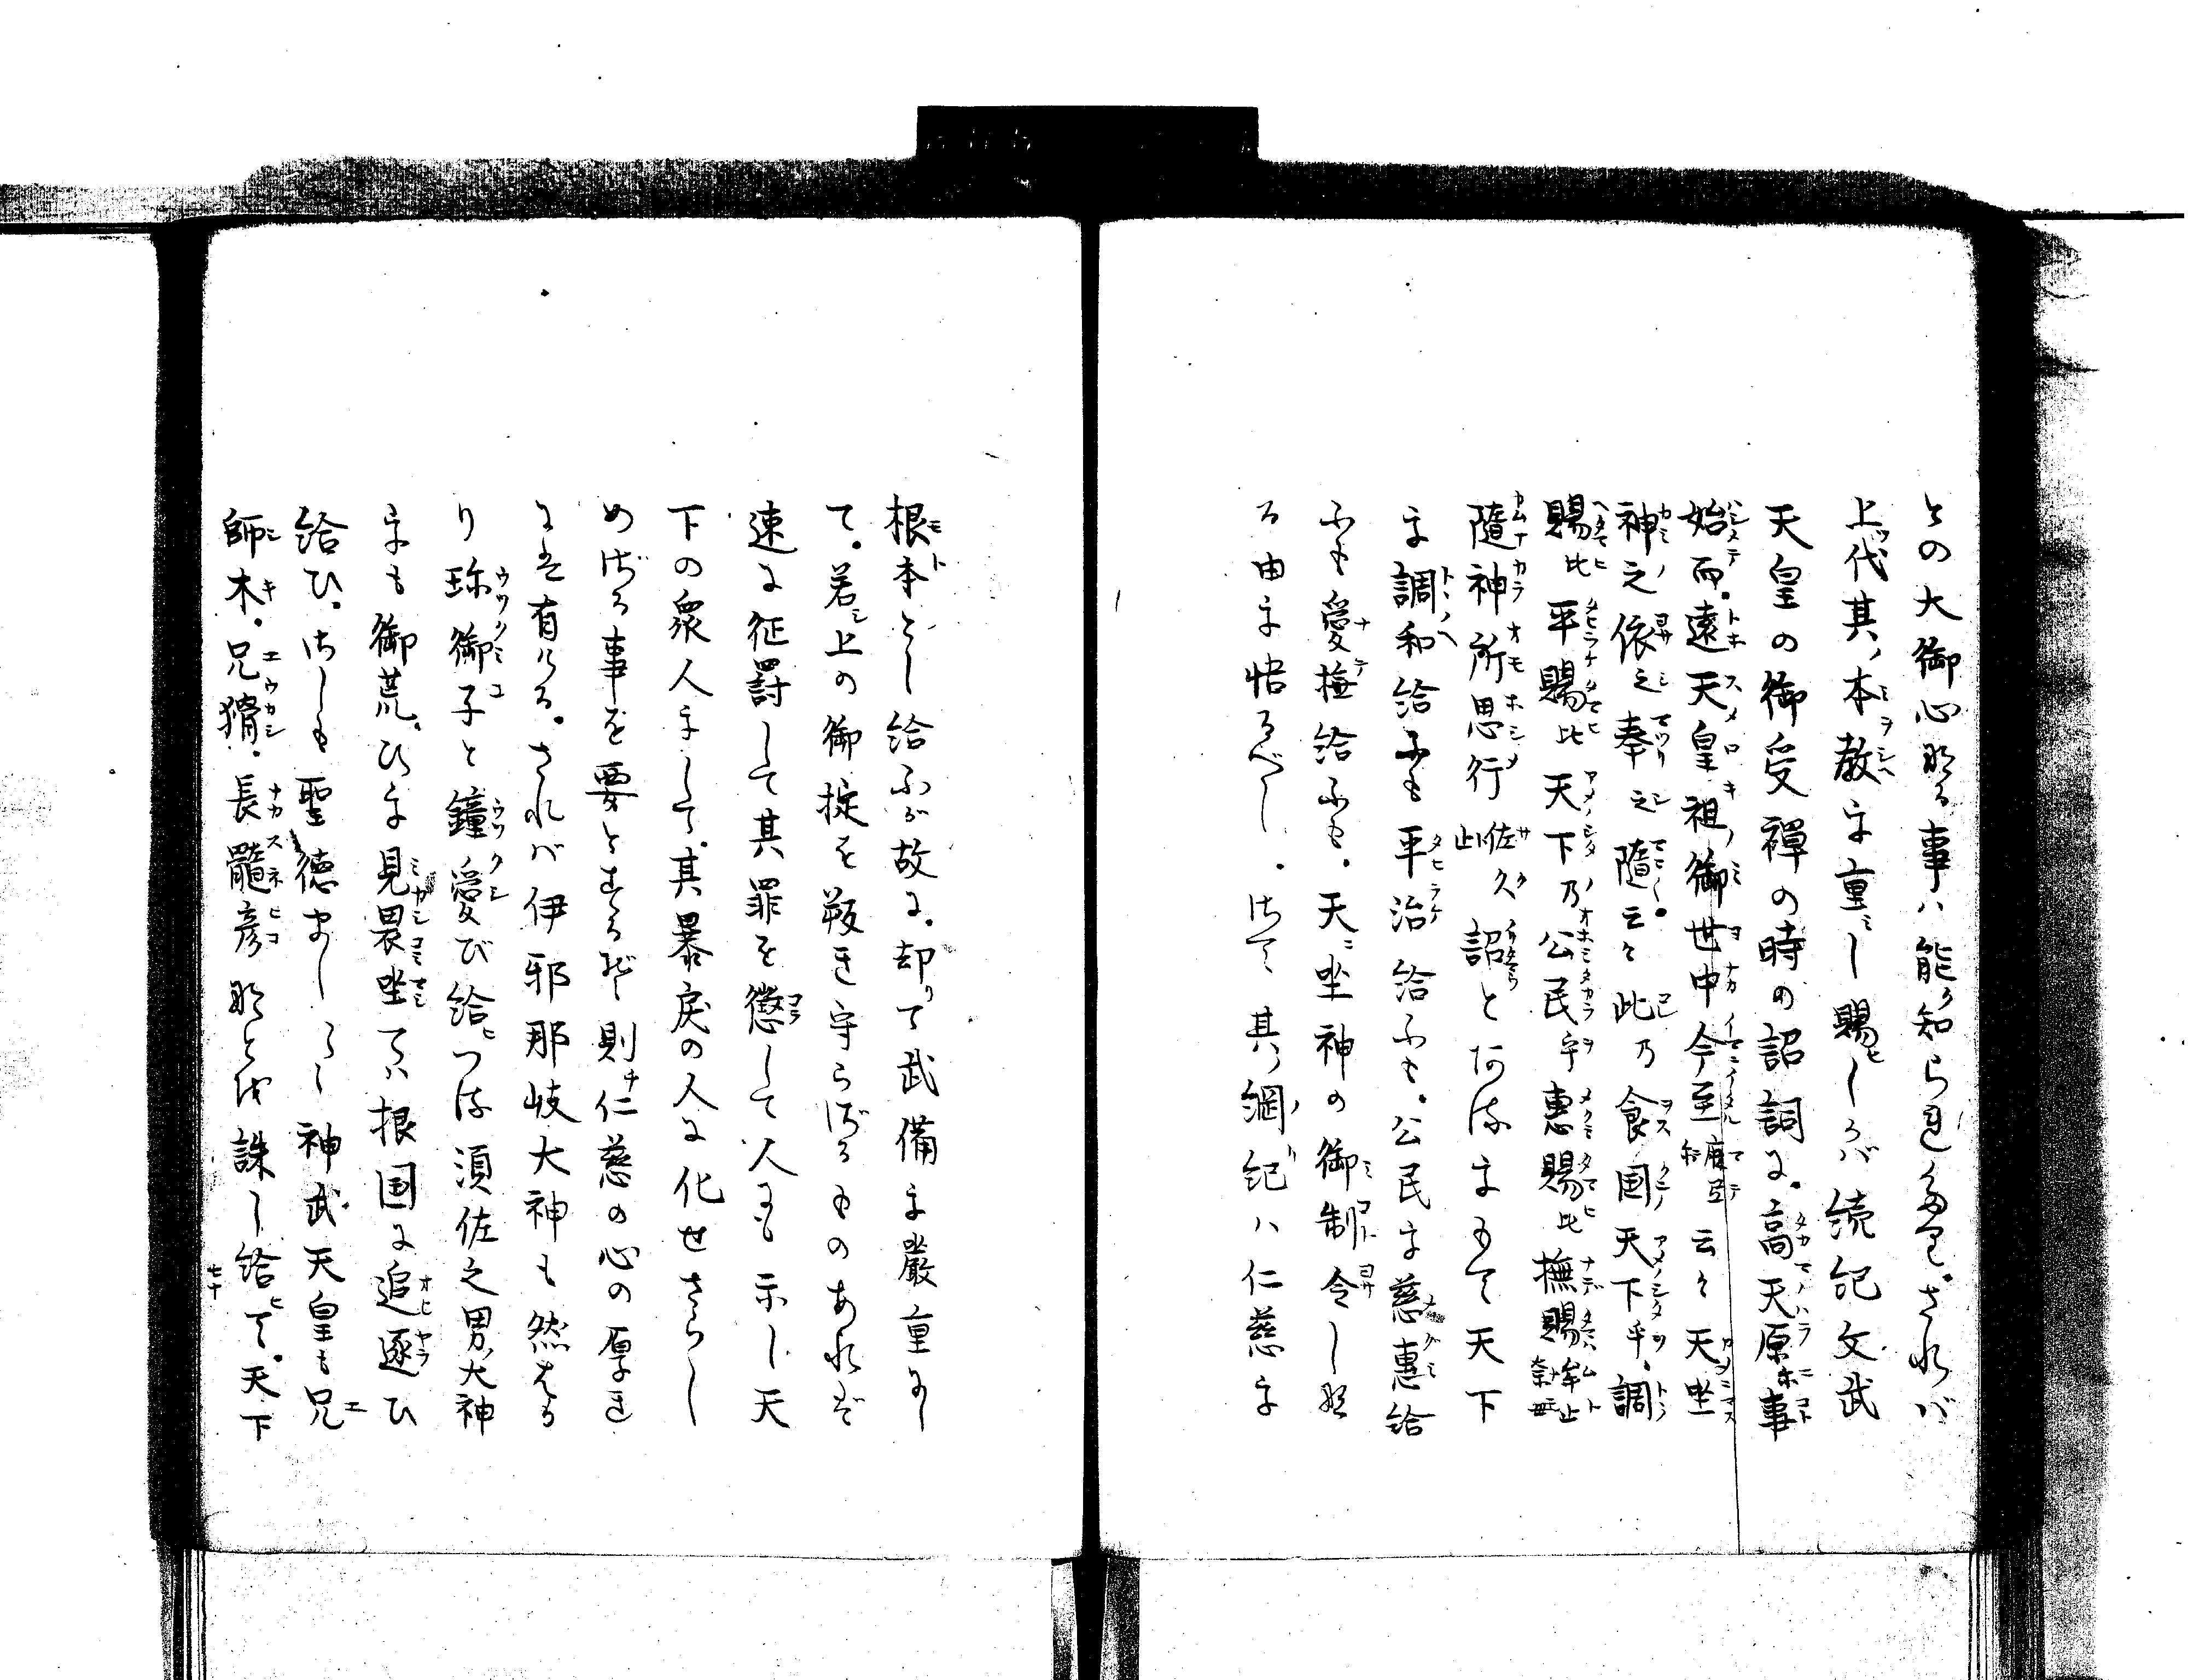 との大御心なる事ハ能ク知られたり。されバ
上ツ代其ノ本教ヲ重ミし賜ヒしかバ続紀文武
天皇の御受禅の時の詔詞に。高天原ホ事
始而。遠天皇祖ノ御世中今至麻弖云々天坐
神之依之奉之随云々此乃食国天下乎調
賜比平賜比天下乃公民乎恵賜比撫賜牟止奈母
随神所思行佐久止詔とあるをもて天下
を調和給ふも平治給ふも。公民を慈恵給
ふも愛撫給ふも。天ニ坐神の御制令しな
る由を悟るべし。さて其ノ綱紀ハ仁慈を
根本とし給ふが故に。却りて武備を厳重にし
て。若シ上の御掟を叛き守らざるものあれば
速に征罸して其罪を懲して人にも示し天
下の衆人をして。其暴戻の人に化せさらし
めざる事を要とするぞ則チ仁慈の心の厚き
には有ける。されバ伊邪那岐大神も然はか
り珍御子と鐘愛び給ヒつる須佐之男大神
をも御荒ひを見畏坐てハ根国に追逐ひ
給ひ。さしも聖徳ましまし神武天皇も兄
師木。兄猾。長髓彦などを誅し給ヒて。天下
七十